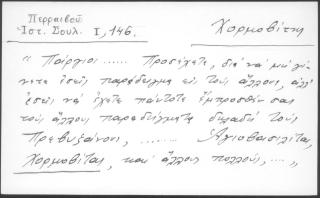 Περραιβοῦ Χορμοβίτης
Ἱστ. Σουλ. I, 146.
"Πάργιοι ...... Προσέχετε, διὰ νὰ μὴ γί-
νητε ἐσεῖς παράδειγμα εἰς τοὺς ἄλλους, ἀλλ'
ἐσεῖς νὰ ἔχετε πάντοτε ἔμπροσθέν σας
τοὺς ἄλλους παραδείγματα δηλαδὴ τοὺς
Πρεβυζαίνους, ........ Ἁγιοβασιλίτας,
Χορμοβίτας, καὶ ἄλλους πολλούς, ...."